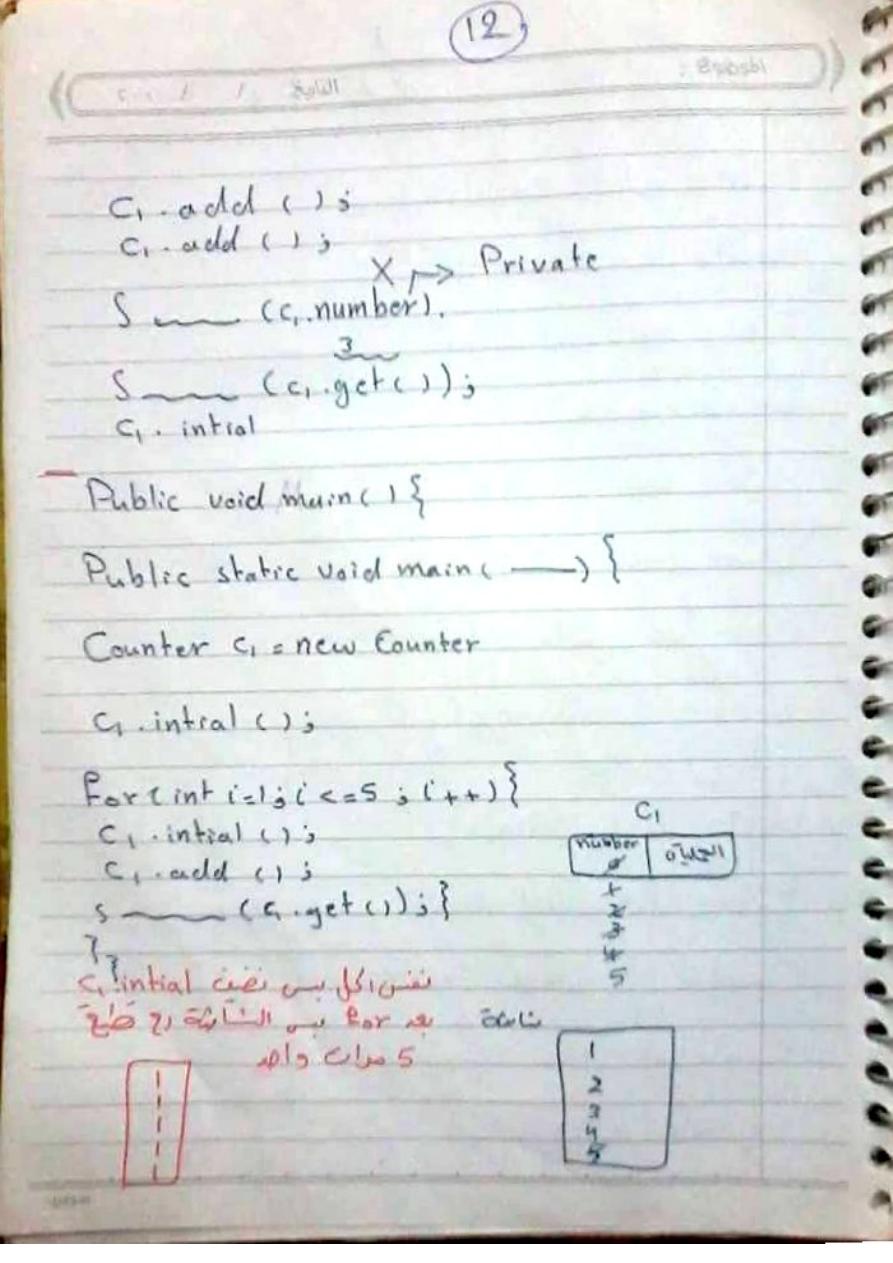 12
الموضوع:
التاريخ / /
C1.add ( );
C1.add ( );
X → Private
S ___ (c1.number).
3
S ___ (c1.get( ));
C1. intial
Public void main( ){
Public static void main( ___ ) {
Counter c1 = new Counter
C1.intial ( );
For (int i=1; i <=5 ; i++) {
C1.intial ( );
C1.add ( );
S ___ (c1.get( )); }
}
}
C1
number
0
1
2
3
4
5
نفس الحل بس نضيف C1.intial
بعد for بس الشاشة رح تطبع
5 مرات واحد
شاشة
1
2
3
4
5
1
1
1
1
1